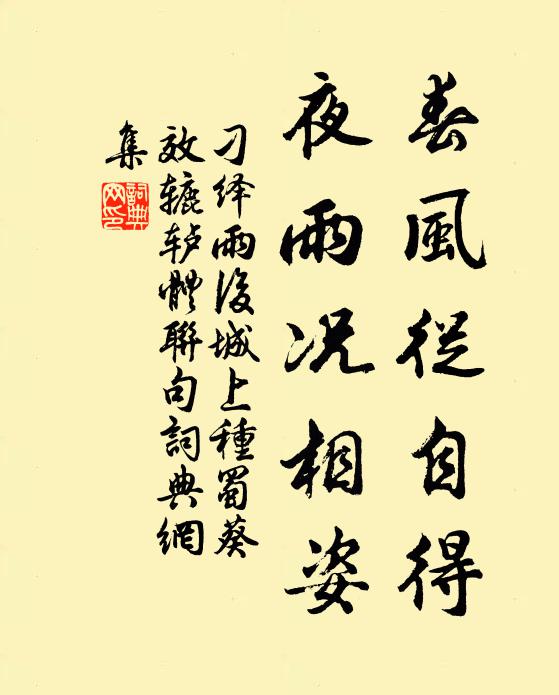 春風從自得
夜雨況相姿
刁绎雨後城上種蜀葵
效辘轳體聯句詞典網
集
詞典
网印